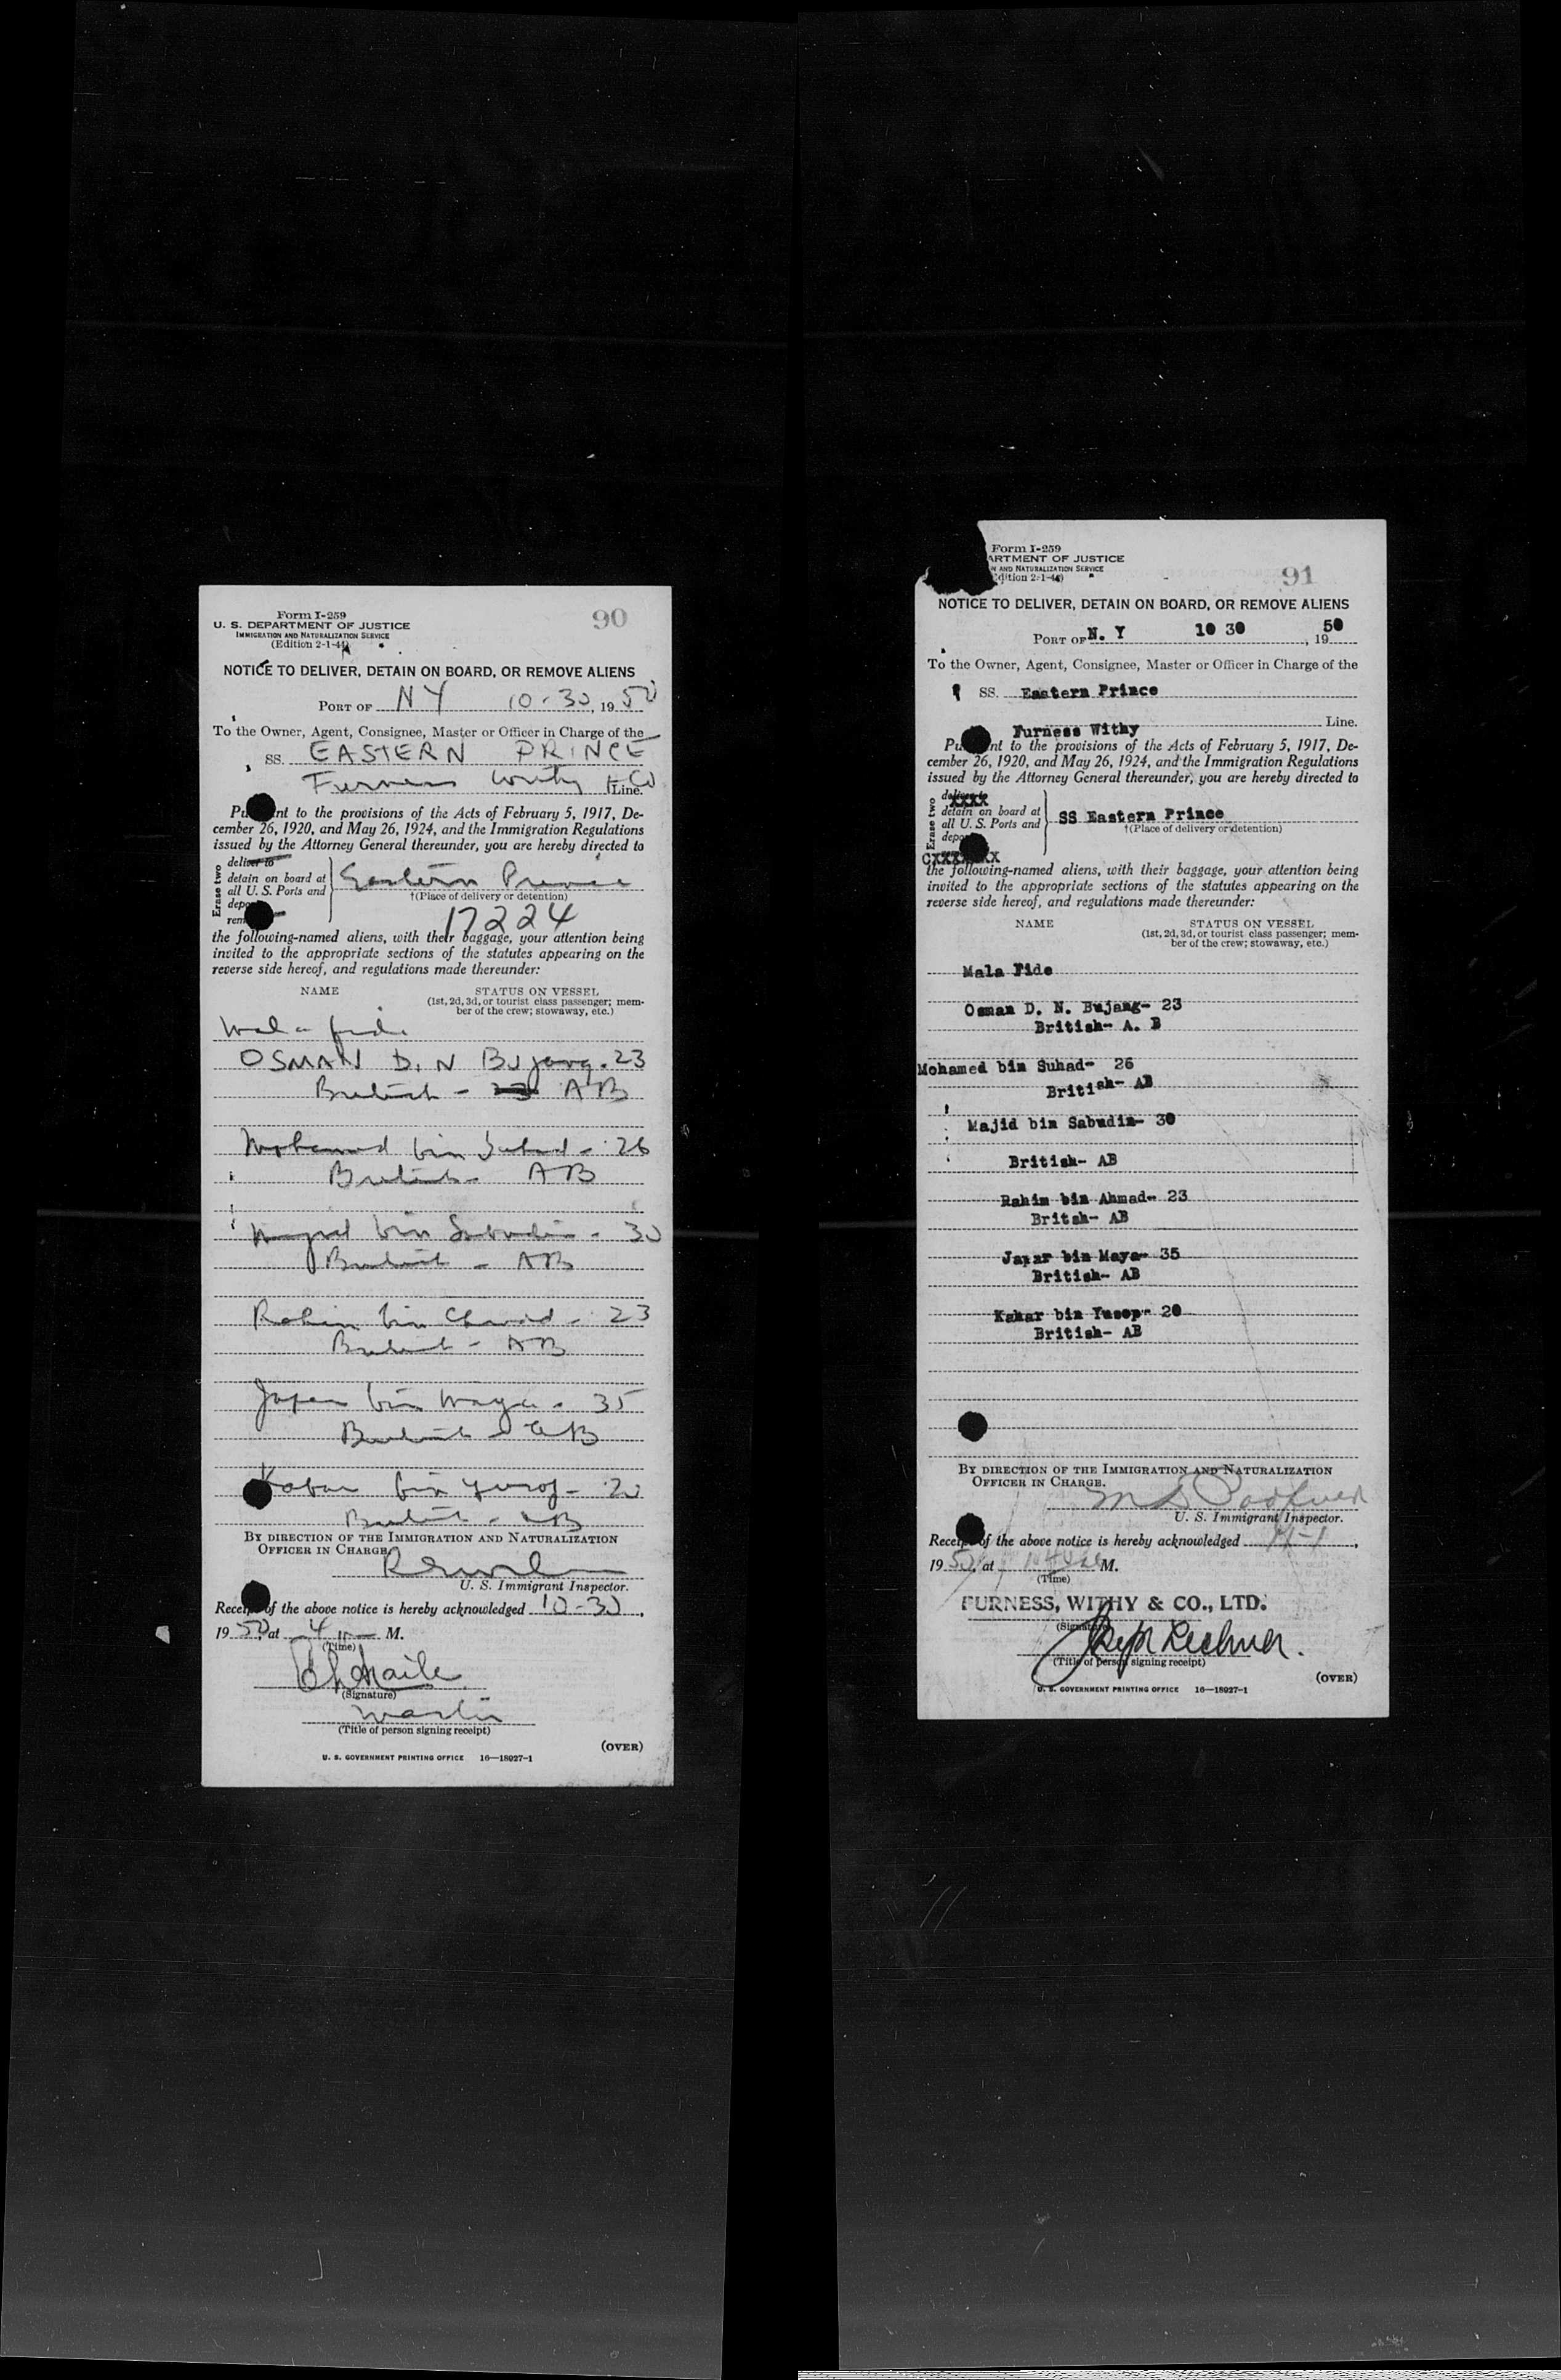 Form I-259
U. S. DEPARTMENT OF JUSTICE
IMMIGRATION AND NATURALIZATION SERVICE
(Edition 2-1-44)
90
NOTICE TO DELIVER, DETAIN ON BOARD, OR REMOVE ALIENS
PORT OF NY 10-30, 1950
To the Owner, Agent, Consignee, Master or Officer in Charge of the
SS. EASTERN PRINCE
Furness Withy & Co Line.
Pu nt to the provisions of the Acts of February 5, 1917, De-
cember 26, 1920, and May 26, 1924, and the Immigration Regulations
issued by the Attorney General thereunder, you are hereby directed to
Erase two
deliver to
detain on board at
all U. S. Ports and
depo
rem
Eastern Prince
†(Place of delivery or detention)
17224
the following-named aliens, with their baggage, your attention being
invited to the appropriate sections of the statutes appearing on the
reverse side hereof, and regulations made thereunder:
NAME STATUS ON VESSEL
(1st, 2d, 3d, or tourist class passenger; mem-
ber of the crew; stowaway, etc.)
Mala fide
OSMAN D. N Bujang. 23
British - AB
Mohamed bin Suhad - 26
British - AB
Majid bin Sabudin - 30
British - AB
Rahim bin Ahmad - 23
British - AB
Japar bin Maya - 35
British - AB
Kahar bin Yusof - 20
British - AB
BY DIRECTION OF THE IMMIGRATION AND NATURALIZATION
OFFICER IN CHARGE.
U. S. Immigrant Inspector.
Receip of the above notice is hereby acknowledged 10-30,
1950, at 4 M.
(Time)
(Signature)
Master
(Title of person signing receipt)
(OVER)
U. S. GOVERNMENT PRINTING OFFICE 16—18927-1
Form I-259
ARTMENT OF JUSTICE
N AND NATURALIZATION SERVICE
dition 2-1-44)
91
NOTICE TO DELIVER, DETAIN ON BOARD, OR REMOVE ALIENS
PORT OF N. Y 10 30, 1950
To the Owner, Agent, Consignee, Master or Officer in Charge of the
SS. Eastern Prince
Furness Withy Line.
Pu nt to the provisions of the Acts of February 5, 1917, De-
cember 26, 1920, and May 26, 1924, and the Immigration Regulations
issued by the Attorney General thereunder, you are hereby directed to
Erase two
deliver to
XXXX
detain on board at
all U. S. Ports and
depo
CXXXX XX
SS Eastern Prince
†(Place of delivery or detention)
the following-named aliens, with their baggage, your attention being
invited to the appropriate sections of the statutes appearing on the
reverse side hereof, and regulations made thereunder:
NAME STATUS ON VESSEL
(1st, 2d, 3d, or tourist class passenger; mem-
ber of the crew; stowaway, etc.)
Mala Fide
Osman D. N. Bujang- 23
British- A. B
Mohamed bin Suhad- 26
British- AB
Majid bin Sabudin- 30
British- AB
Rahim bin Ahmad- 23
Britsh- AB
Japar bin Maya- 35
British- AB
Kahar bin Yusop- 20
British- AB
BY DIRECTION OF THE IMMIGRATION AND NATURALIZATION
OFFICER IN CHARGE.
U. S. Immigrant Inspector.
Receip of the above notice is hereby acknowledged 11-1,
1950, at M.
(Time)
FURNESS, WITHY & CO., LTD.
(Signature)
(Title of person signing receipt)
(OVER)
U. S. GOVERNMENT PRINTING OFFICE 16—18927-1